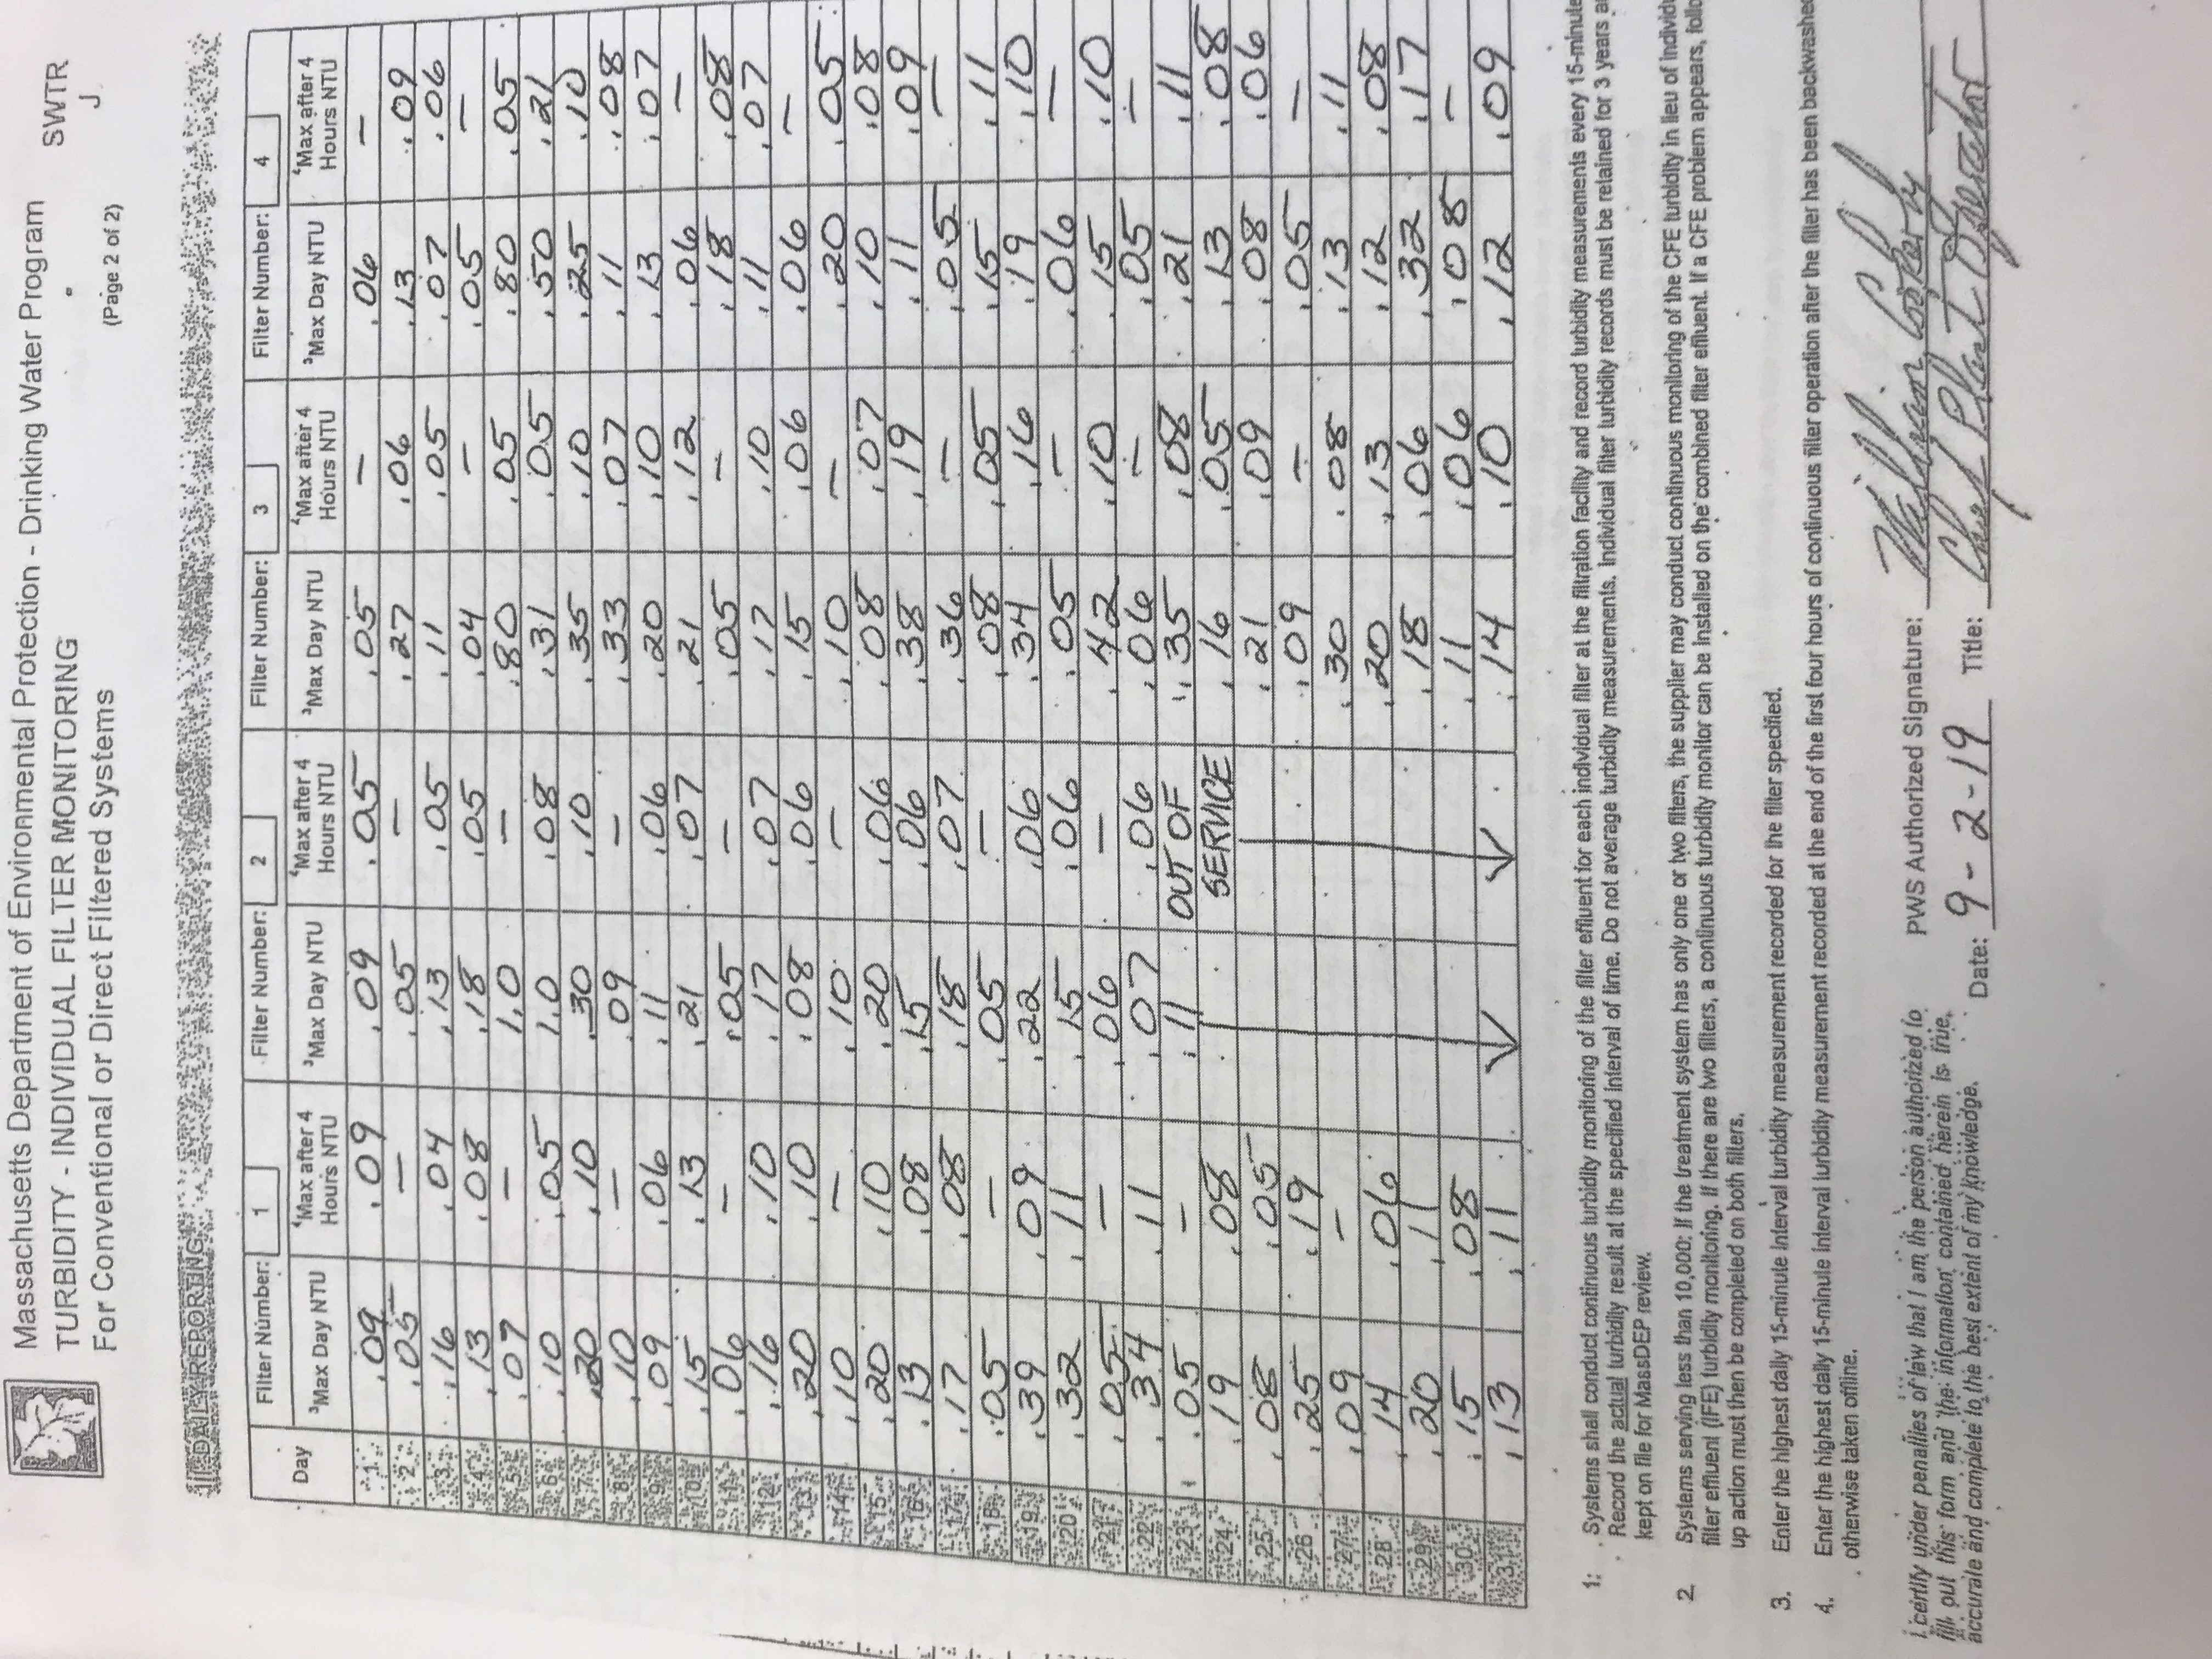 Massachusetts Department of Environmental Protection - Drinking Water Program SWTR
TURBIDITY - INDIVIDUAL FILTER MONITORING J
For Conventional or Direct Filtered Systems (Page 2 of 2)
DAILY REPORTING
Day Filter Number: 1 Filter Number: 2 Filter Number: 3 Filter Number: 4
³Max Day NTU ⁴Max after 4 Hours NTU ³Max Day NTU ⁴Max after 4 Hours NTU ³Max Day NTU ⁴Max after 4 Hours NTU ³Max Day NTU ⁴Max after 4 Hours NTU
1 .09 .09 .09 .05 .05 – .06 –
2 .05 – .05 – .27 .06 .13 .09
3 .16 .04 .13 .05 .11 .05 .07 .06
4 .13 .08 .18 .05 .04 – .05 –
5 .07 – 1.0 – .80 .05 .80 .05
6 .10 .05 1.0 .08 .31 .05 .50 .21
7 .20 .10 .30 .10 .35 .10 .25 .10
8 .10 – .09 – .33 .07 .11 .08
9 .09 .06 .11 .06 .20 .10 .13 .07
10 .15 .13 .21 .07 .21 .12 .06 –
11 .06 – .05 – .05 – .18 .08
12 .16 .10 .17 .07 .17 .10 .11 .07
13 .20 .10 .08 .06 .15 .06 .06 –
14 .10 – .10 – .10 – .20 .05
15 .20 .10 .20 .06 .08 .07 .10 .08
16 .13 .08 .15 .06 .38 .19 .11 .09
17 .17 .08 .18 .07 .36 – .05 –
18 .05 – .05 – .08 .05 .15 .11
19 .39 .09 .22 .06 .34 .16 .19 .10
20 .32 .11 .15 .06 .05 – .06 –
21 .05 – .06 – .42 .10 .15 .10
22 .34 .11 .07 .06 .06 – .05 –
23 .05 – .11 OUT OF .35 .08 .21 .11
24 .19 .08 SERVICE .16 .05 .13 .08
25 .08 .05 .21 .09 .08 .06
26 .25 .19 .09 – .05 –
27 .09 – .30 .08 .13 .11
28 .14 .06 .20 .13 .12 .08
29 .20 .11 .18 .06 .32 .17
30 .15 .08 .11 .06 .08 –
31 .13 .11 .14 .10 .12 .09
1. Systems shall conduct continuous turbidity monitoring of the filter effluent for each individual filter at the filtration facility and record turbidity measurements every 15-minute
Record the actual turbidity result at the specified interval of time. Do not average turbidity measurements. Individual filter turbidity records must be retained for 3 years a
kept on file for MassDEP review.
2. Systems serving less than 10,000: If the treatment system has only one or two filters, the supplier may conduct continuous monitoring of the CFE turbidity in lieu of individu
filter effluent (IFE) turbidity monitoring. If there are two filters, a continuous turbidity monitor can be installed on the combined filter effluent. If a CFE problem appears, follo
up action must then be completed on both filters.
3. Enter the highest daily 15-minute interval turbidity measurement recorded for the filter specified.
4. Enter the highest daily 15-minute interval turbidity measurement recorded at the end of the first four hours of continuous filter operation after the filter has been backwashed
otherwise taken offline.
I certify under penalties of law that I am the person authorized to
fill out this form and the information contained herein is true,
accurate and complete to the best extent of my knowledge.
PWS Authorized Signature: William Coakerly
Date: 9-2-19 Title: Chief Plant Operator